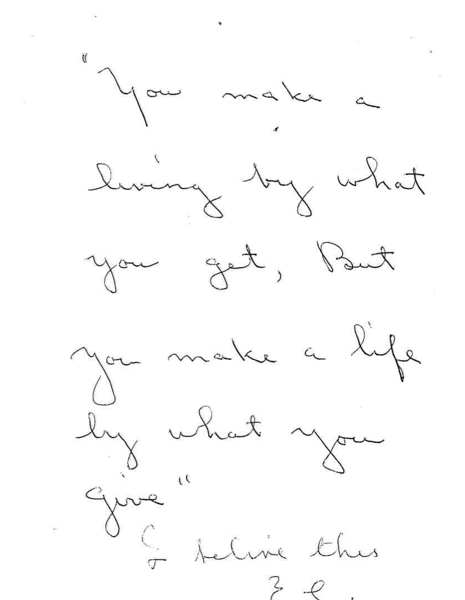 "You make a
living by what
you get, But
you make a life
by what you
give"
I believe this